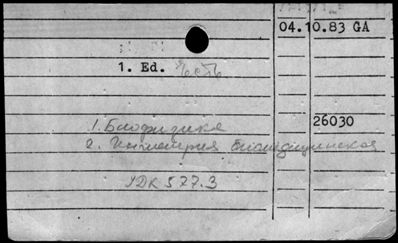 04.10.83 GA
1. Ed. Есть
1. Биофизика
26030
2. Инженерия биомедицинская
УДК 577.3